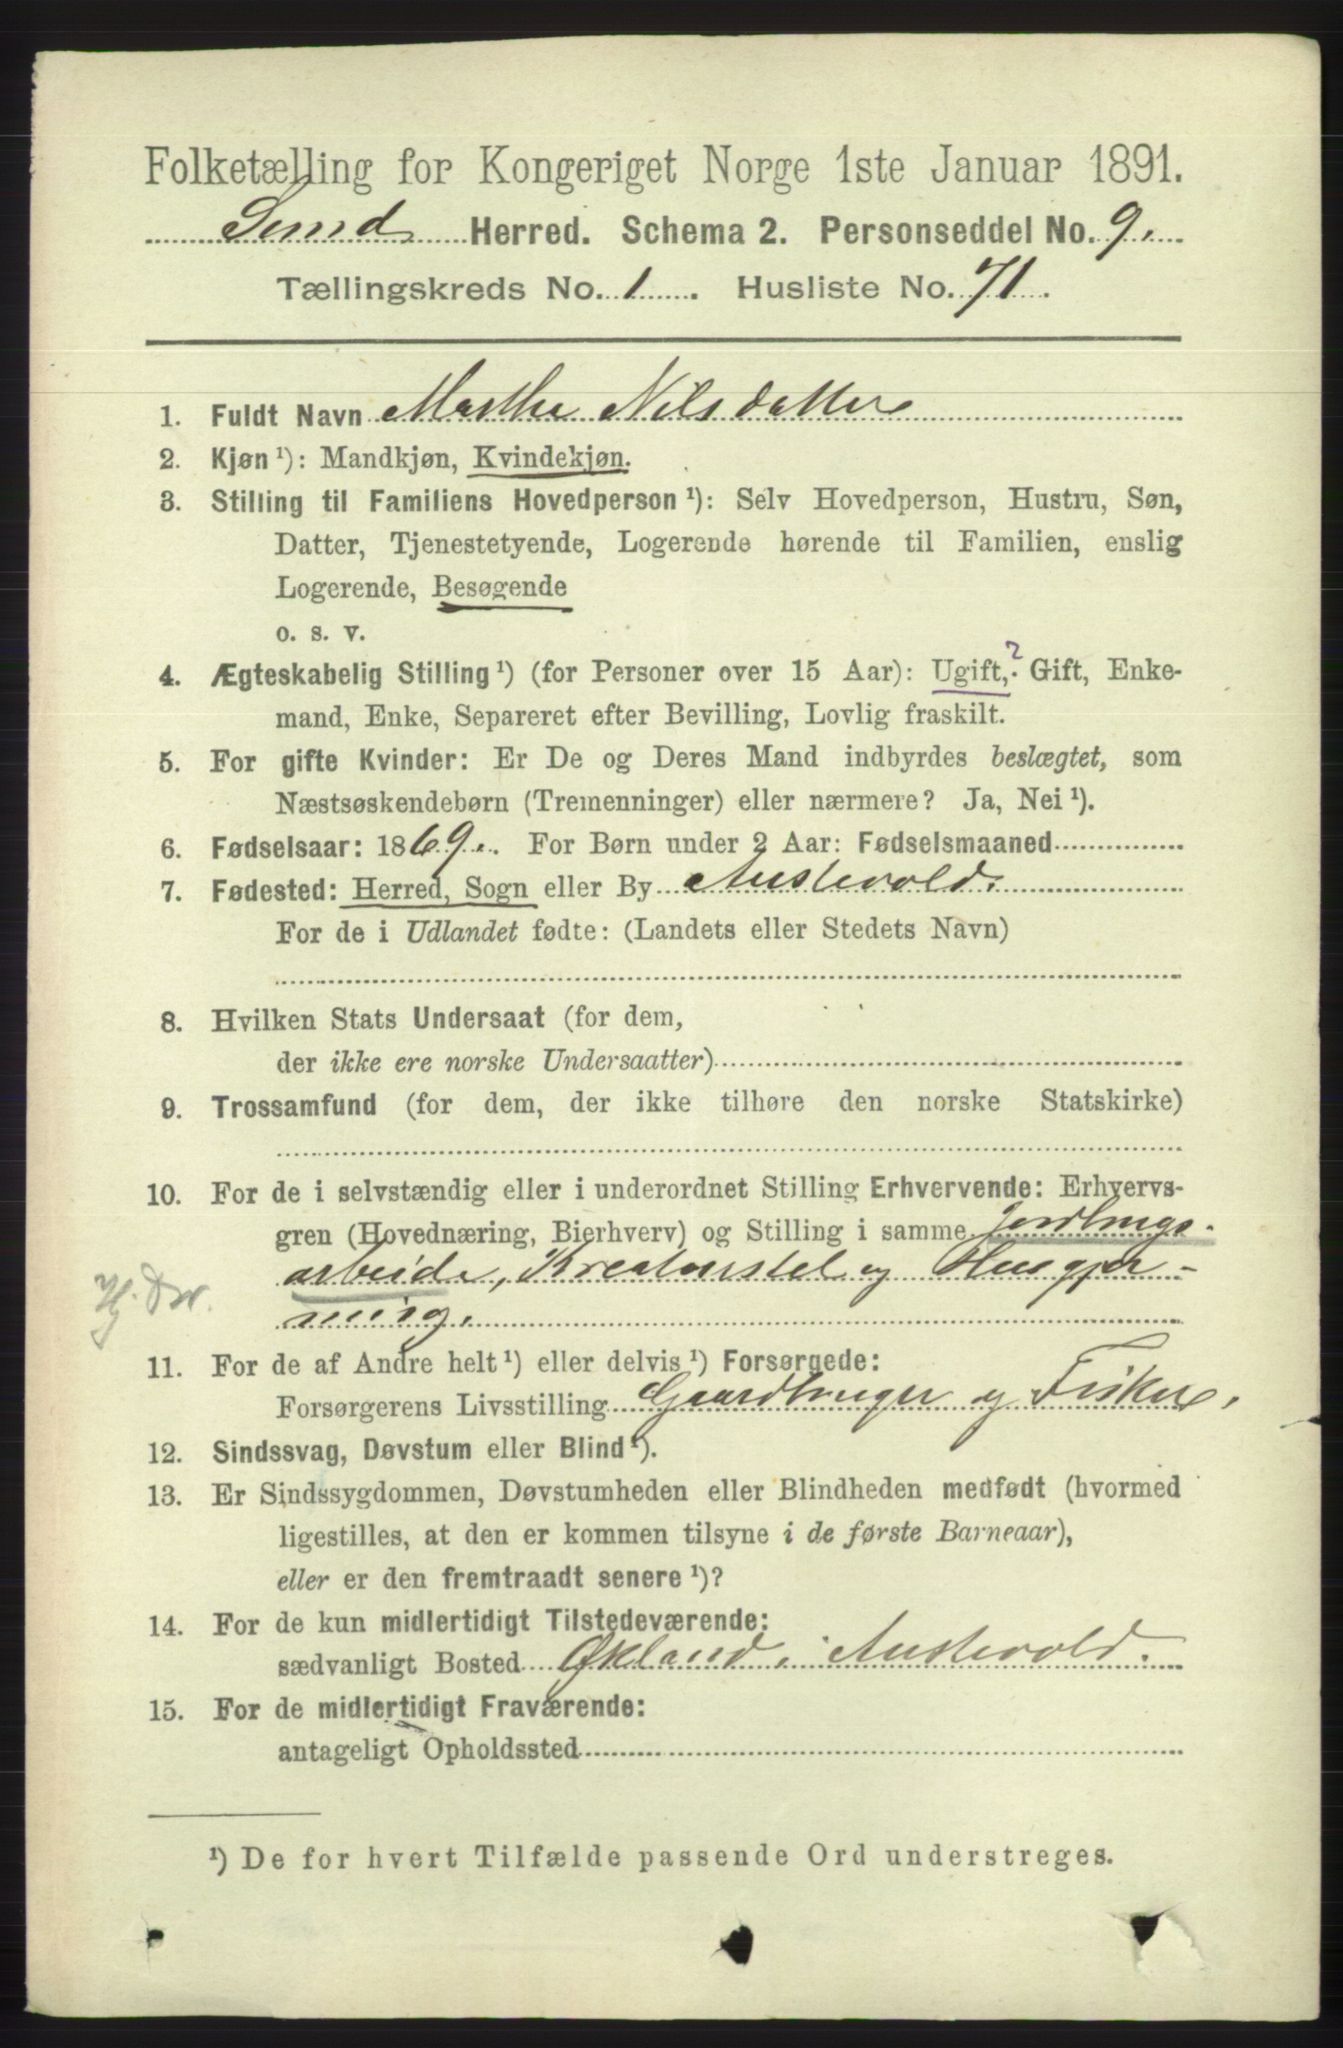 Folketælling for Kongeriget Norge 1ste Januar 1891.
Sund Herred. Schema 2. Personseddel No. 9.
Tællingskreds No. 1. Husliste No. 71.
1. Fuldt Navn Marthe Nilsdatter
2. Kjøn ¹): Mandkjøn, Kvindekjøn.
3. Stilling til Familiens Hovedperson ¹): Selv Hovedperson, Hustru, Søn,
Datter, Tjenestetyende, Logerende hørende til Familien, enslig
Logerende, Besøgende
o. s. v.
4. Ægteskabelig Stilling ¹) (for Personer over 15 Aar): Ugift,? Gift, Enke-
mand, Enke, Separeret efter Bevilling, Lovlig fraskilt.
5. For gifte Kvinder: Er De og Deres Mand indbyrdes beslægtet, som
Næstsøskendebørn (Tremenninger) eller nærmere? Ja, Nei ¹).
6. Fødselsaar: 1869. For Børn under 2 Aar: Fødselsmaaned
7. Fødested: Herred, Sogn eller By Austevold.
For de i Udlandet fødte: (Landets eller Stedets Navn)
8. Hvilken Stats Undersaat (for dem,
der ikke ere norske Undersaatter)
9. Trossamfund (for dem, der ikke tilhøre den norske Statskirke)
10. For de i selvstændig eller i underordnet Stilling Erhvervende: Erhvervs-
gren (Hovednæring, Bierhverv) og Stilling i samme Jordbrugs-
arbeide, Kreaturstel og Husgjer-
Hj. Dtr.
ning.
11. For de af Andre helt ¹) eller delvis ¹) Forsørgede:
Forsørgerens Livsstilling Gaardbruger og Fisker.
12. Sindssvag, Døvstum eller Blind ¹).
13. Er Sindssygdommen, Døvstumheden eller Blindheden medfødt (hvormed
ligestilles, at den er kommen tilsyne i de første Barneaar),
eller er den fremtraadt senere ¹)?
14. For de kun midlertidigt Tilstedeværende:
sædvanligt Bosted Økland i Austevold.
15. For de midlertidigt Fraværende:
antageligt Opholdssted
¹) De for hvert Tilfælde passende Ord understreges.